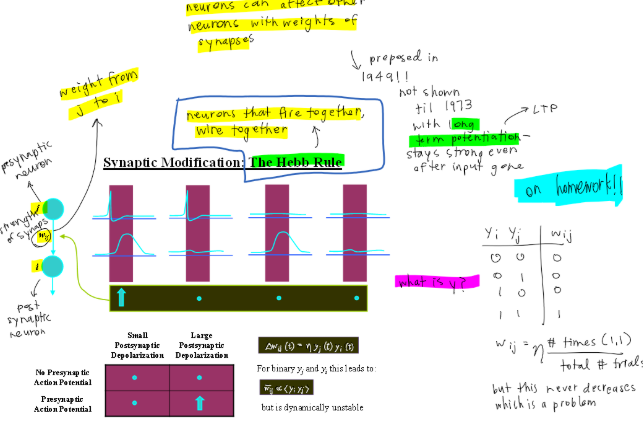 neurons can affect other
neurons with weights of
synapses
proposed in
1949!!
not shown
til 1973
with long
term potentiation
stays strong even
after input gone
LTP
weight from
j to i
neurons that fire together,
wire together
Synaptic Modification: The Hebb Rule
presynaptic
neuron
strength
of synaps
j
wij
i
post
synaptic
neuron
on homework!!
what is y?
yi yj wij
0 0 0
0 1 0
1 0 0
1 1 1
wij = η # times (1,1)
total # trials
but this never decreases
which is a problem
Small Postsynaptic Depolarization
Large Postsynaptic Depolarization
No Presynaptic
Action Potential
Presynaptic
Action Potential
Δwij (t) = η yj (t) yi (t)
For binary yj and yi this leads to:
w̅ij ∝ ⟨yi yj⟩
but is dynamically unstable